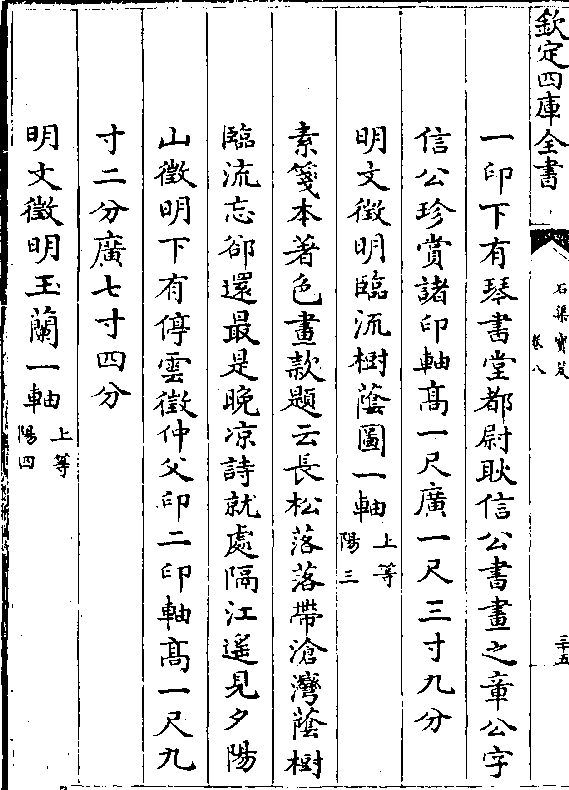 欽定四庫全書
石渠寶笈
卷八
三十五
一印下有琴書堂都尉耿信公書畫之章公字
信公珍賞諸印軸髙一尺廣一尺三寸九分
明文徵明臨流樹蔭圖一軸上等陽三
素箋本著色畫款題云長松落落帶滄灣蔭樹
臨流忘郤還最是晚凉詩就處隔江遥見夕陽
山徵明下有停雲徵仲父印二印軸髙一尺九
寸二分廣七寸四分
明文徵明玉蘭一軸上等陽四